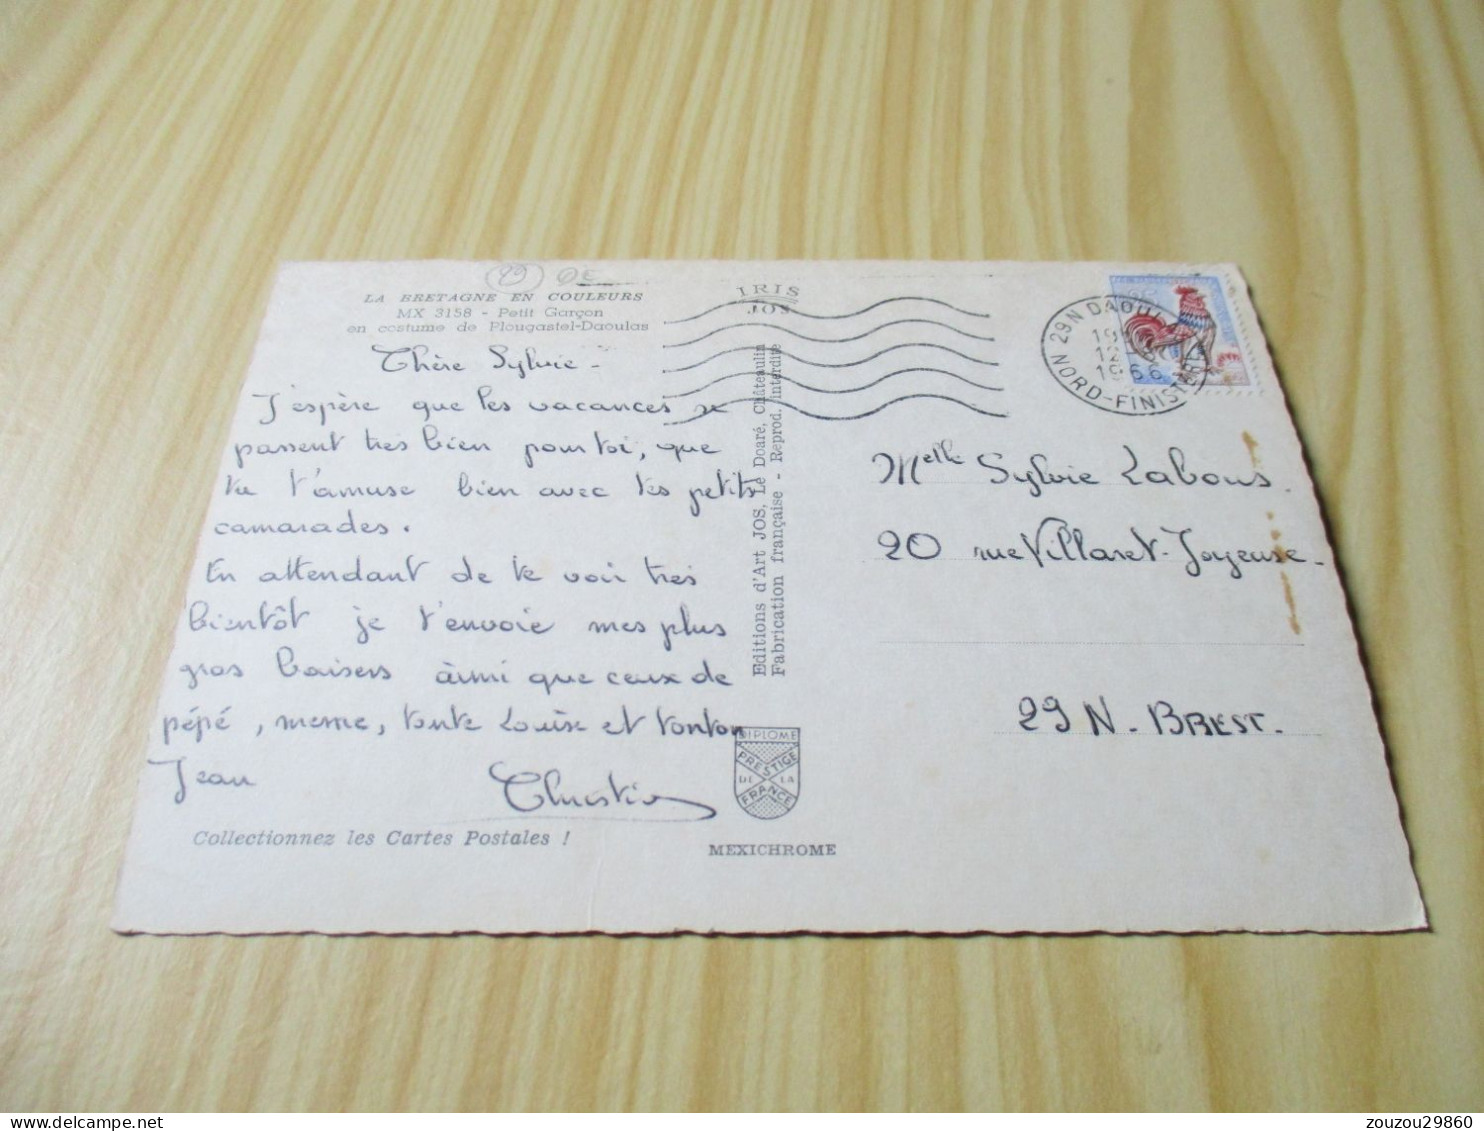 29
LA BRETAGNE EN COULEURS
MX 3158 - Petit Garçon
en costume de Plougastel-Daoulas
Chère Sylvie -
J'espère que les vacances se
passent très bien pour toi, que
tu t'amuse bien avec tes petits
camarades.
En attendant de te voir très
bientôt je t'envoie mes plus
gros baisers àinsi que ceux de
pépé, meme, tante Louise et tonton
Jean
Collectionnez les Cartes Postales !
IRIS
JOS
Editions d'Art JOS, Le Doaré, Châteaulin
Fabrication française - Reprod. interdite
DIPLOME
PRESTIGE
DE LA
FRANCE
MEXICHROME
29N DAOUL
1966
NORD-FINIST
Melle Sylvie Labous.
20 rue Villaret-Joyeuse-
29 N. BREST.
zouzou29860